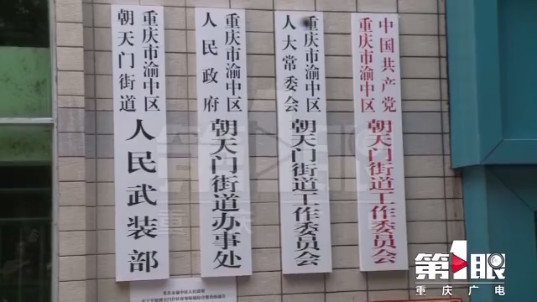 重庆市渝中区
朝天门街道
人民武装部
重庆市渝中区
人民政府
朝天门街道办事处
重庆市渝中区
人大常委会
朝天门街道工作委员会
中国共产党
重庆市渝中区
朝天门街道工作委员会
第1眼
重庆广电